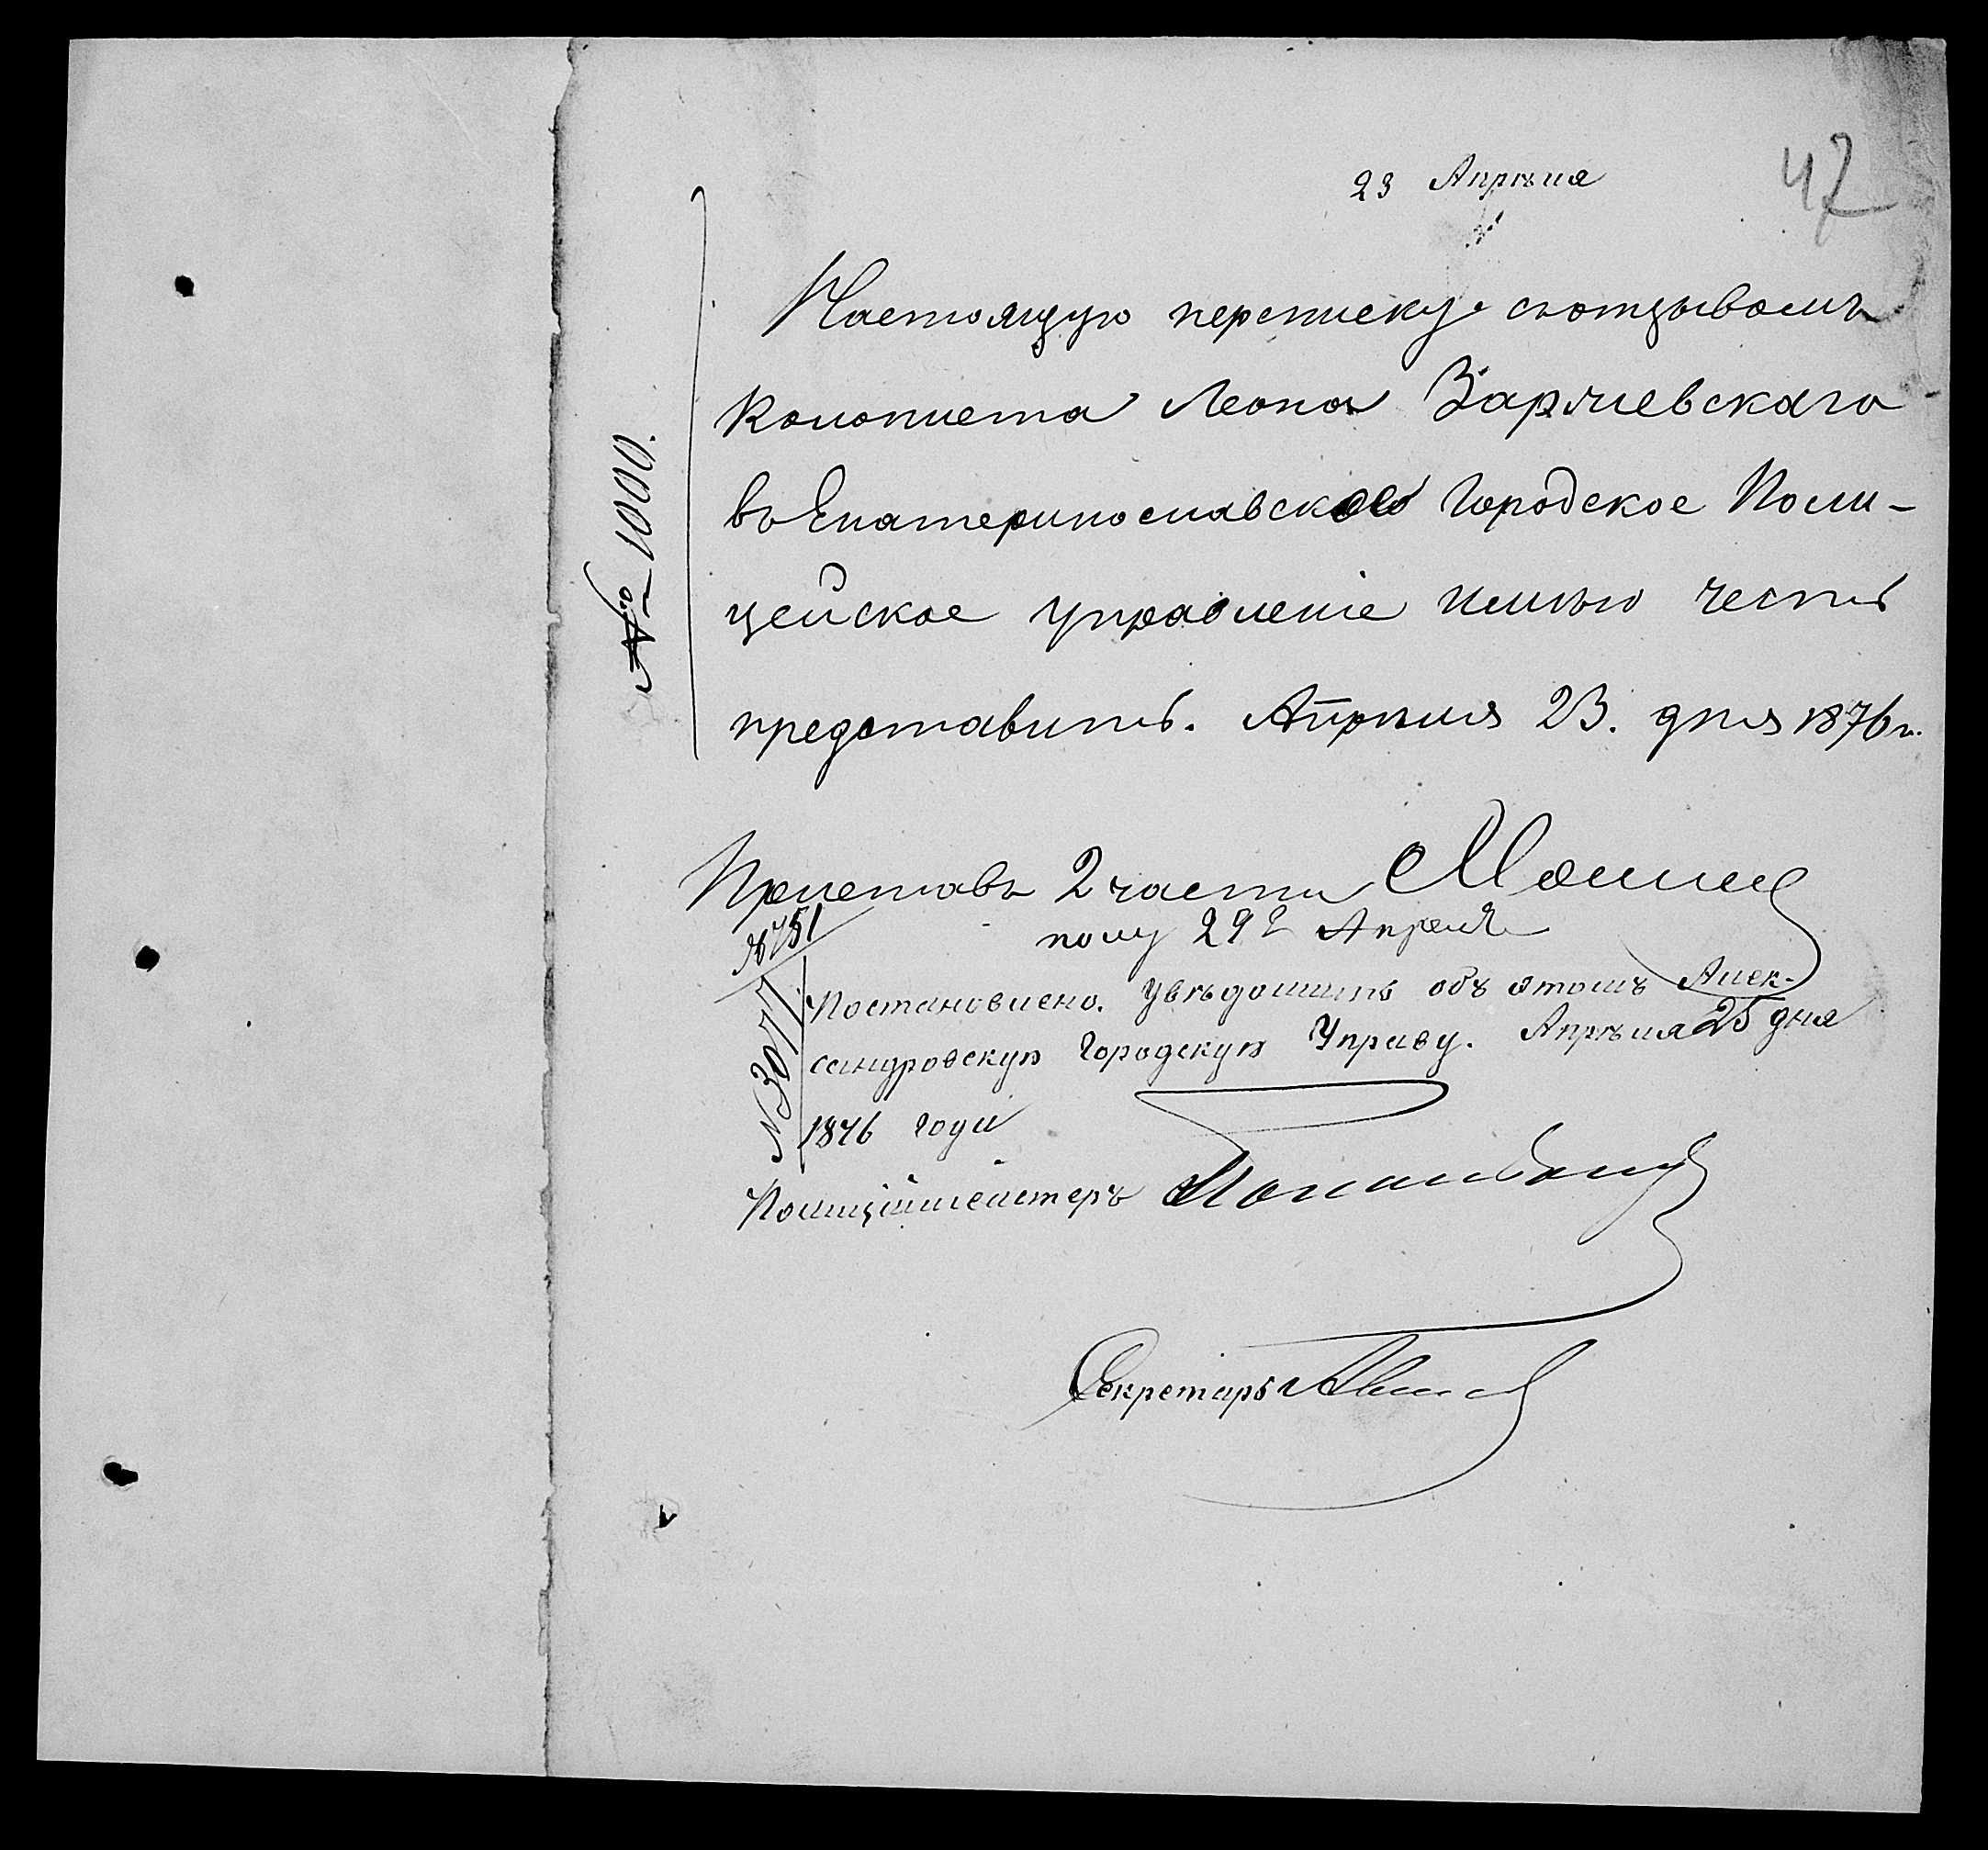 47
23 Апрѣля
Настоящую переписку съ отзывомъ
колониста Леона Зарчевскаго
въ Екатеринославское Городское Поли-
цейское управленіе имѣю честь
представить. Апрѣля 23. дня 1876 г.
№ 1000.
Приставъ 2 части
№ 751
полу 29 Апреля
Постановлено. Увѣдомить объ этомъ Алек-
сандровскую Городскую Управу. Апрѣля 25 дня
1876 года
№ 3077
Полиціймейстеръ
Секретарь